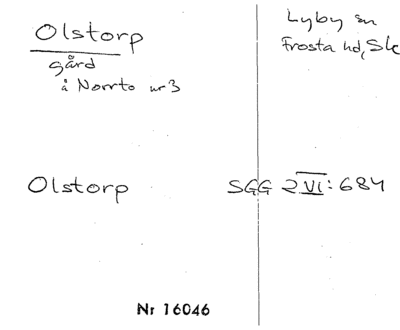 Olstorp
gård
å Norrto nr 3
Lyby sn
Frosta hd, Sk
Olstorp
SGG 2 VI: 684
Nr 16046